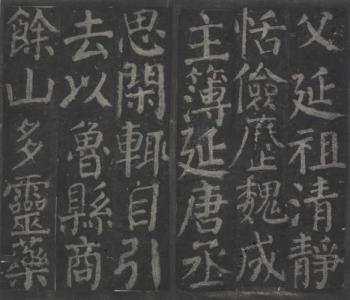 父延祖清静
恬儉歷魏成
主簿延唐丞
思閑輒自引
去以魯縣商
餘山多靈藥